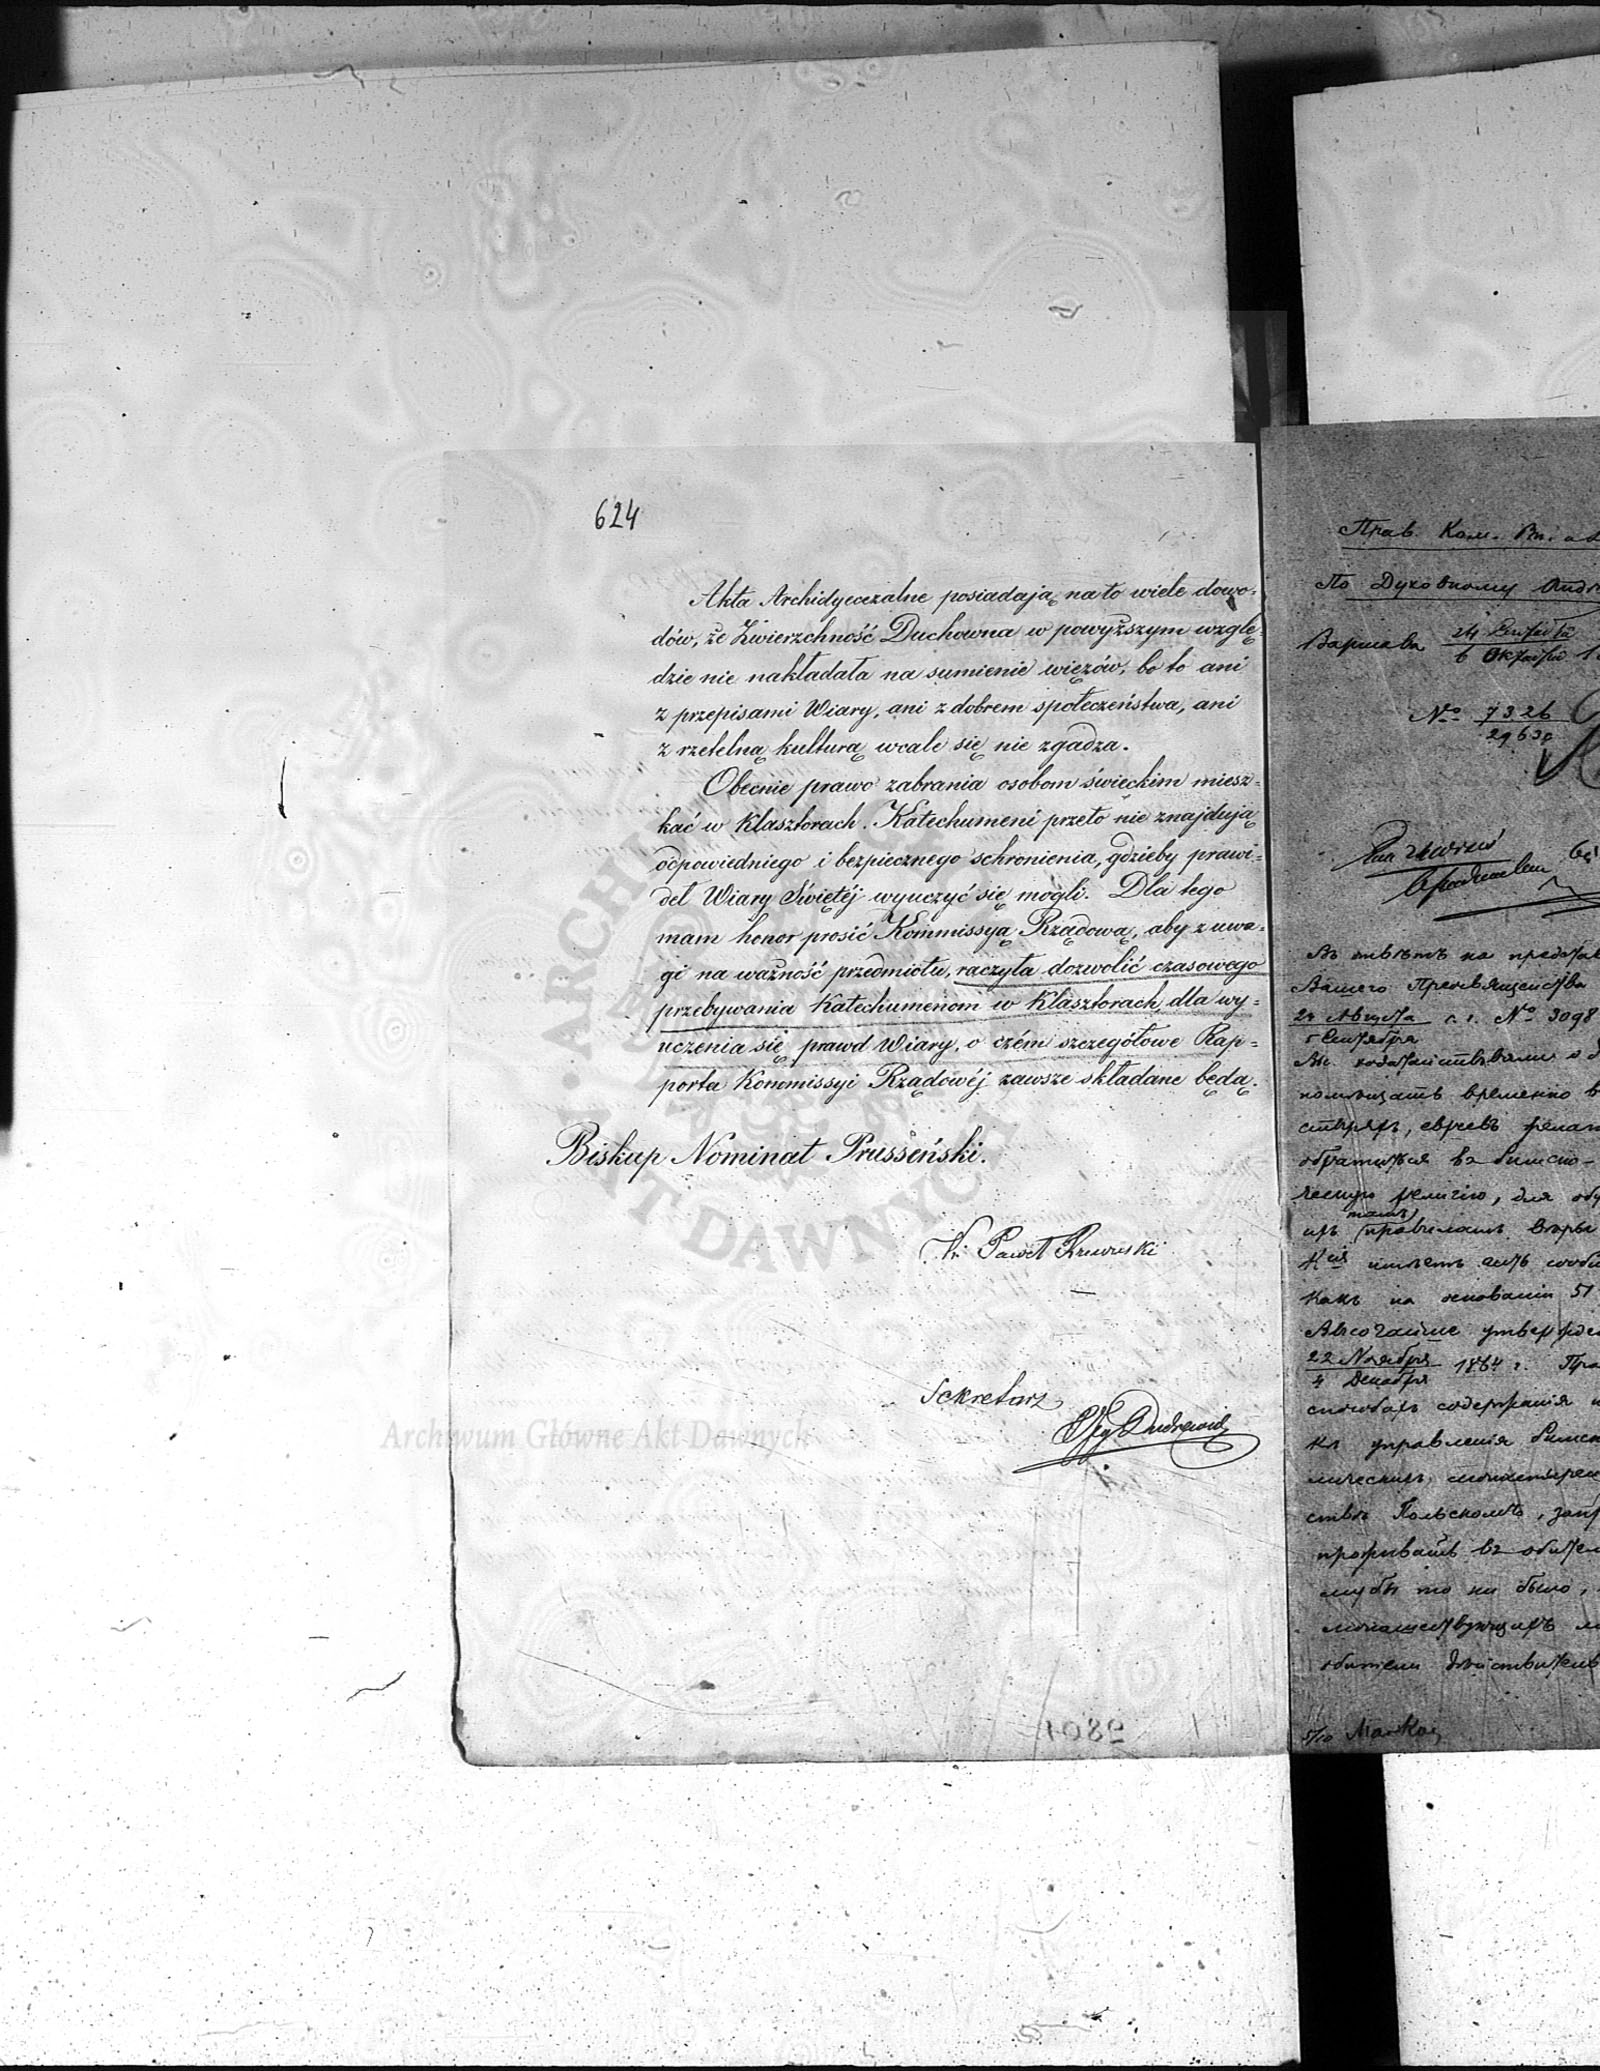 624
Akta Archidyecezalne posiadają na to wiele dowo-
dów, że Zwierzchność Duchowna w powyższym wzglę-
dzie nie nakładała na sumienie więzów, bo to ani
z przepisami Wiary, ani z dobrem społeczeństwa, ani
z rzetelną kulturą wcale się nie zgadza.
Obecnie prawo zabrania osobom świeckim miesz-
kać w Klasztorach. Katechumeni przeto nie znajdują
odpowiedniego i bezpiecznego schronienia, gdzieby prawi-
deł Wiary Świętéj wyuczyć się mogli. Dla tego
mam honor prosić Kommissyą Rządową, aby z uwa-
gi na ważność przedmiotu, raczyła dozwolić czasowego
przebywania Katechumenom w Klasztorach, dla wy-
uczenia się prawd Wiary, o czém szczegółowe Rap-
porta Kommissyi Rządowéj zawsze składane będą.
Biskup Nominat Prusseński.
X. Paweł Rzewuski
Sekretarz
1089
ARCHIWUM GŁÓWNE AKT DAWNYCH
Archiwum Główne Akt Dawnych
Прав. Ком. Вн.
По Духовному
Варшава 24 Сентября
6 Октября
№ 7326
Въ отвѣтъ на представ
Вашего Преосвященства
24 Августа с. г. № 3098
5 Сентября
помѣщать временно в
евреевъ
обратиться въ римско-
религію, для обу
ихъ тамъ правиламъ вѣры
имѣетъ честь сообщ
какъ на основаніи 51
Высочайше утвержден
22 Ноября 1864 г. Пра
4 Декабря
способахъ содержанія и
управленія римск
ствѣ Польскомъ, запр
проживать въ обител
бы то ни было,
монашествующихъ
обители дѣйствител
5/10